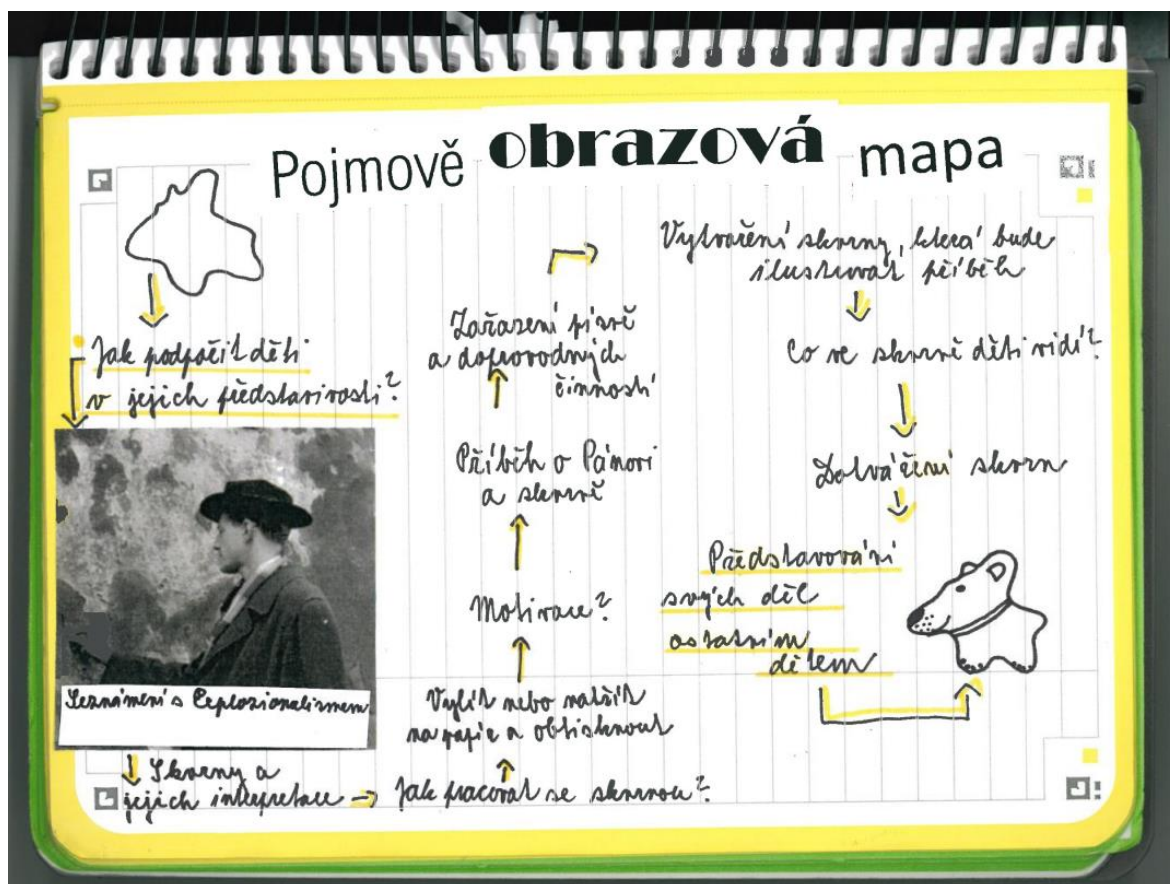 Pojmově obrazová mapa
Jak podpořit děti
v jejich představivosti?
Seznámení s Explosionalismem
Skvrny a
jejich intepretace
Jak pracovat se skvrnou?
Vylít nebo natřít
na papír a obtisknout
Motivace?
Příběh o Pánovi
a skvrně
Zařazení písně
a doprovodných
činností
Vytvoření skvrny, která bude
ilustrovat příběh
Co ve skvrně děti vidí?
Dotváření skvrn
Představování
svých děl
ostatním
dětem